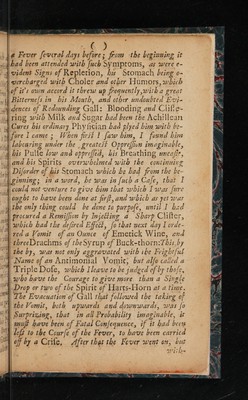 ( )
a Fever several days before; from the beginning it
had been attended with such Symptoms, as were e-
vident Signs of Repletion, his Stomach being o-
vercharged with Choler and other Humors, which
of it's own accord it threw up frequently, with a great
Bitterness in his Mouth, and other undoubted Evi-
dences of Redounding Gall: Blooding and Cliste-
ring with Milk and Sugar had been the Achillean
Cures his ordinary Physitian had plyed him with be-
fore I came; When first I saw him, I found him
labouring under the greatest Oppression imaginable,
his Pulse low and oppressed, his Breathing uneasy,
and his Spirits overwhelmed with the continuing
Disorder of his Stomach which he had from the be-
ginning; in a word, he was in such a Case, that I
could not venture to give him that which I was sure
ought to have been done at first, and which as yet was
the only thing could be done to purpose, until I had
procured a Remission by Injecting a Sharp Clister,
which had the desired Effect, so that next day I orde-
red a Vomit of an Ounce of Emetick Wine, and
three Drachms of the Syrup of Buck-thorn: This, by
the by, was not only aggravated with the Frightful
Name of an Antimonial Vomit, but also called a
Triple Dose, which I leave to be judged of by those,
who have the Courage to give more than a Single
Drop or two of the Spirit of Harts-Horn at a time.
The Evacuation of Gall that followed the taking of
the Vomit, both upwards and downwards, was so
Surprizing, that in all Probability imaginable, it
must have been of Fatal Consequence, if it had been
left to the Course of the Fever, to have been carried
off by a Crise. After that the Fever went on, but
with-